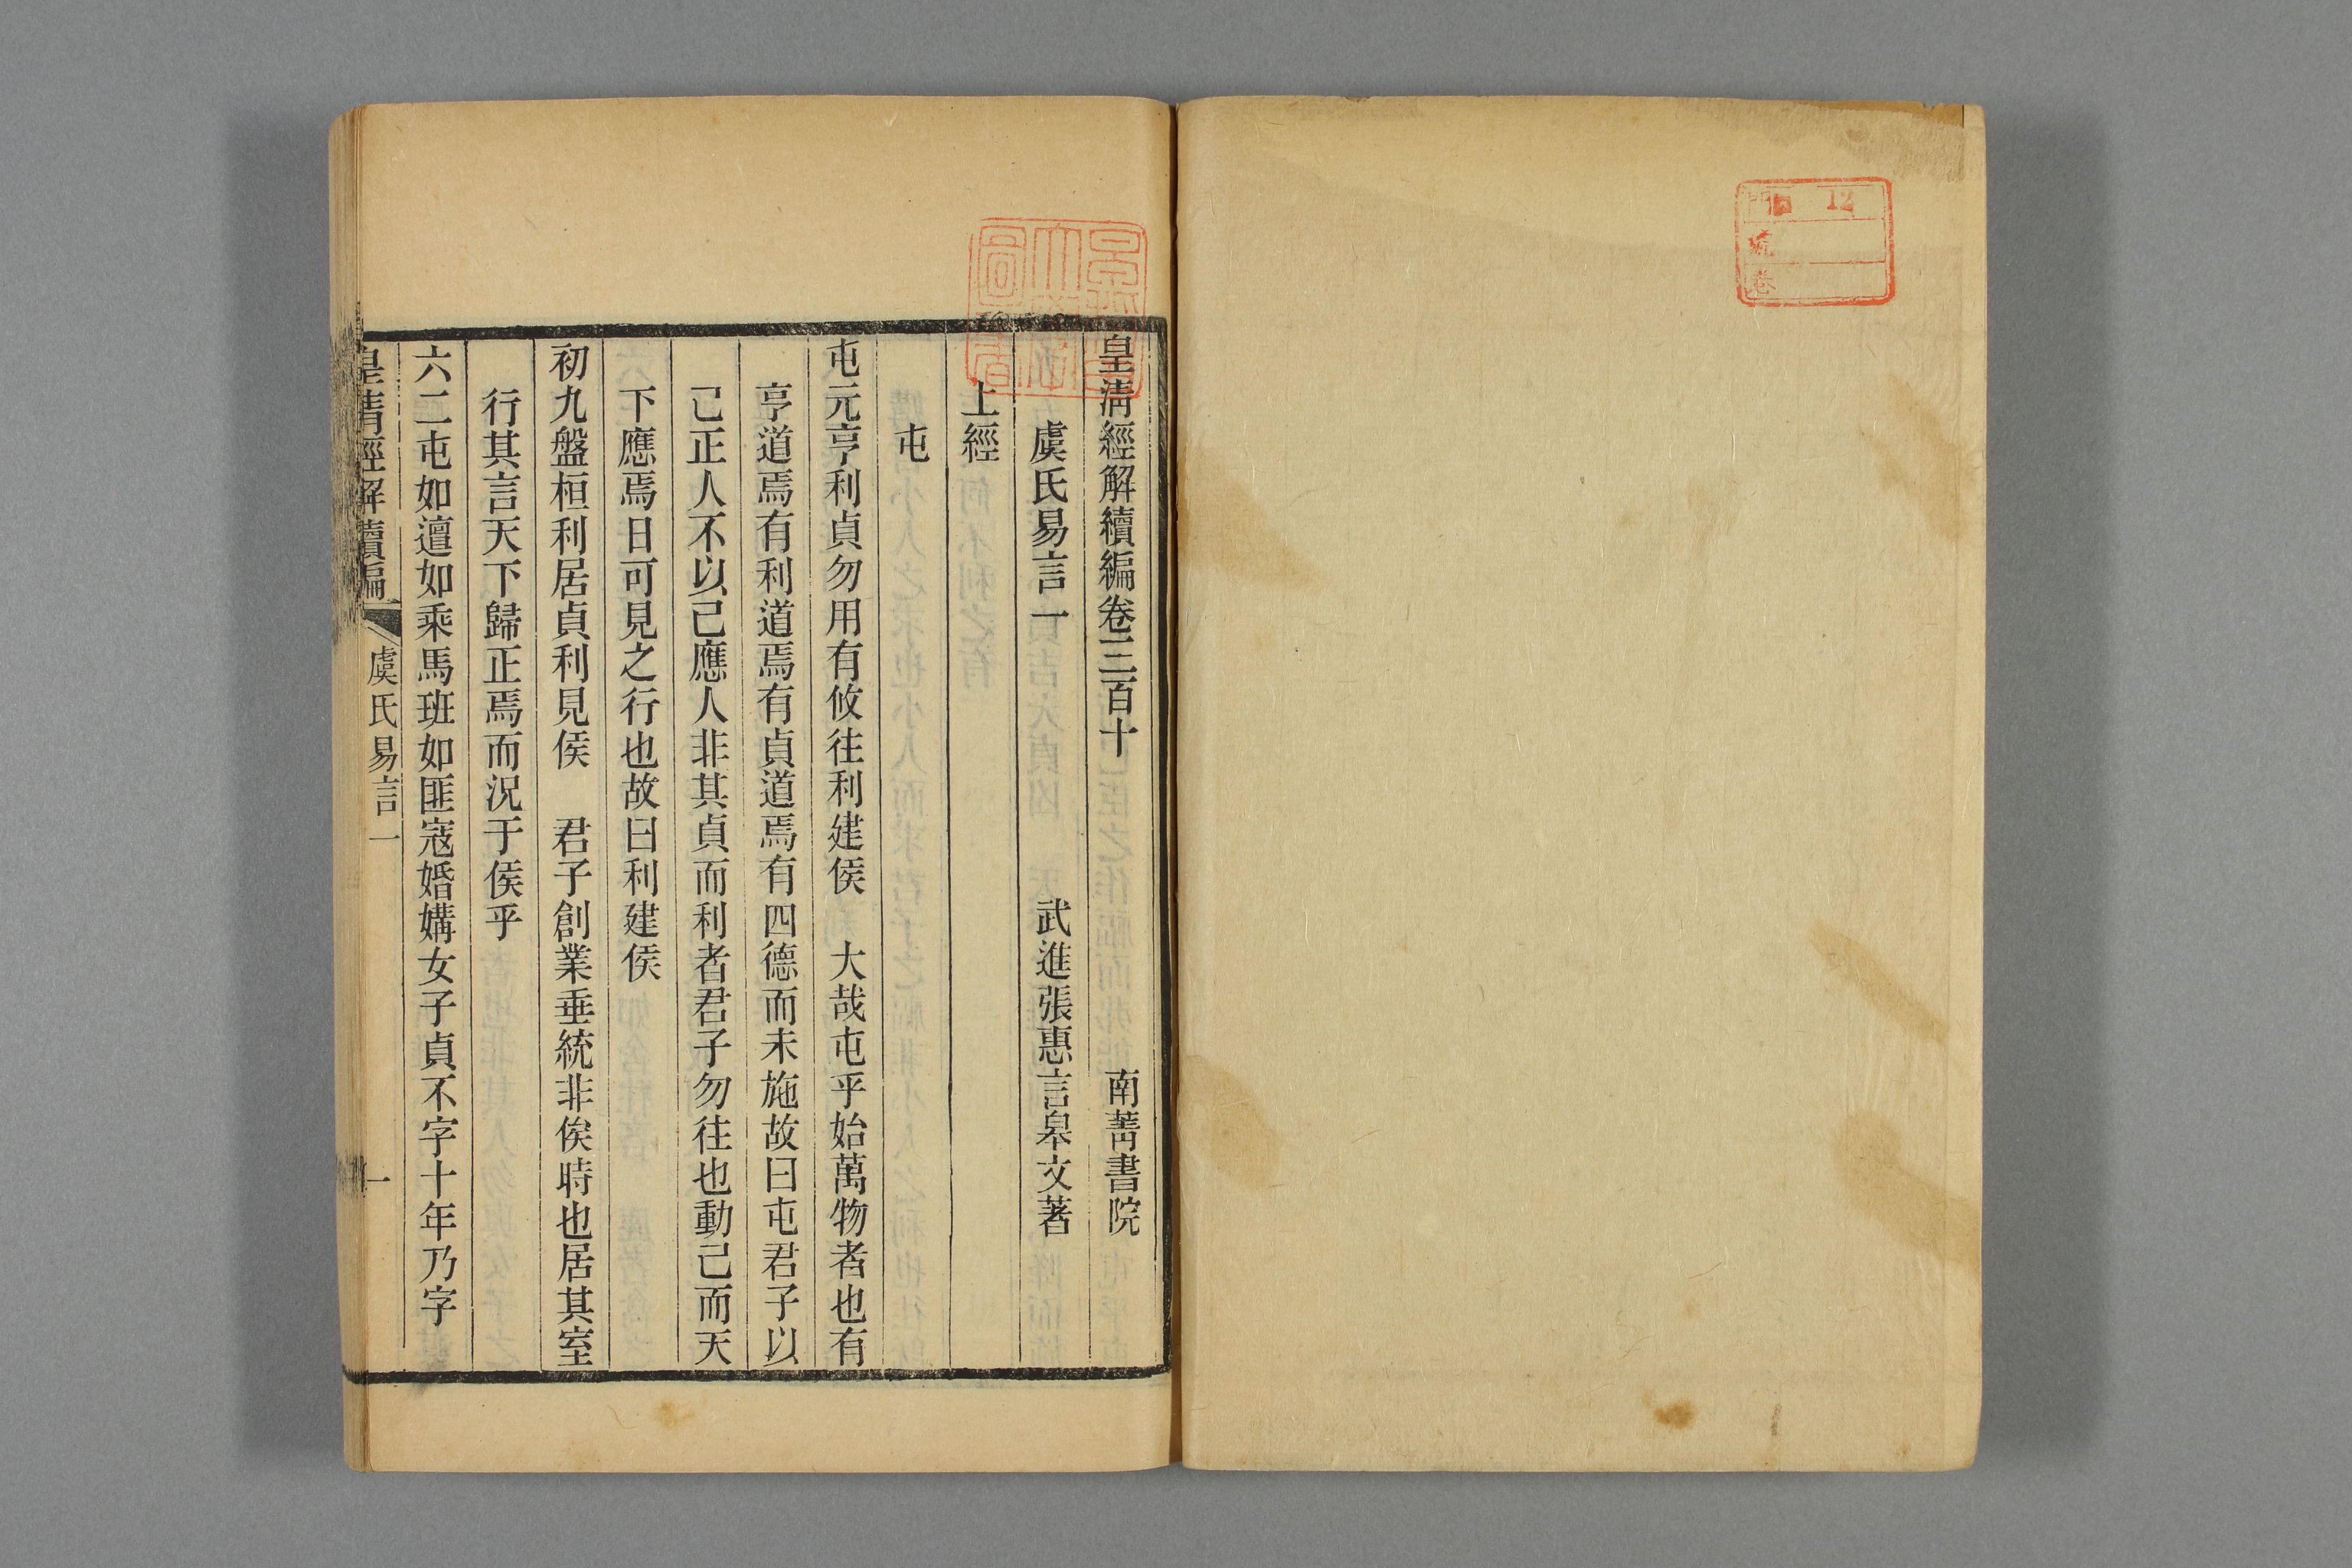 皇清經解續編卷三百十 南菁書院
虞氏易言一 武進張惠言皋文著
上經
屯
屯元亨利貞勿用有攸往利建侯 大哉屯乎始萬物者也有
亨道焉有利道焉有貞道焉有四德而未施故曰屯君子以
己正人不以己應人非其貞而利者君子勿往也動己而天
下應焉日可見之行也故曰利建侯
初九盤桓利居貞利見侯 君子創業垂統非俟時也居其室
行其言天下歸正焉而況于侯乎
六二屯如邅如乘馬班如匪寇婚媾女子貞不字十年乃字
皇清經解續編 虞氏易言一 一
12
號
卷